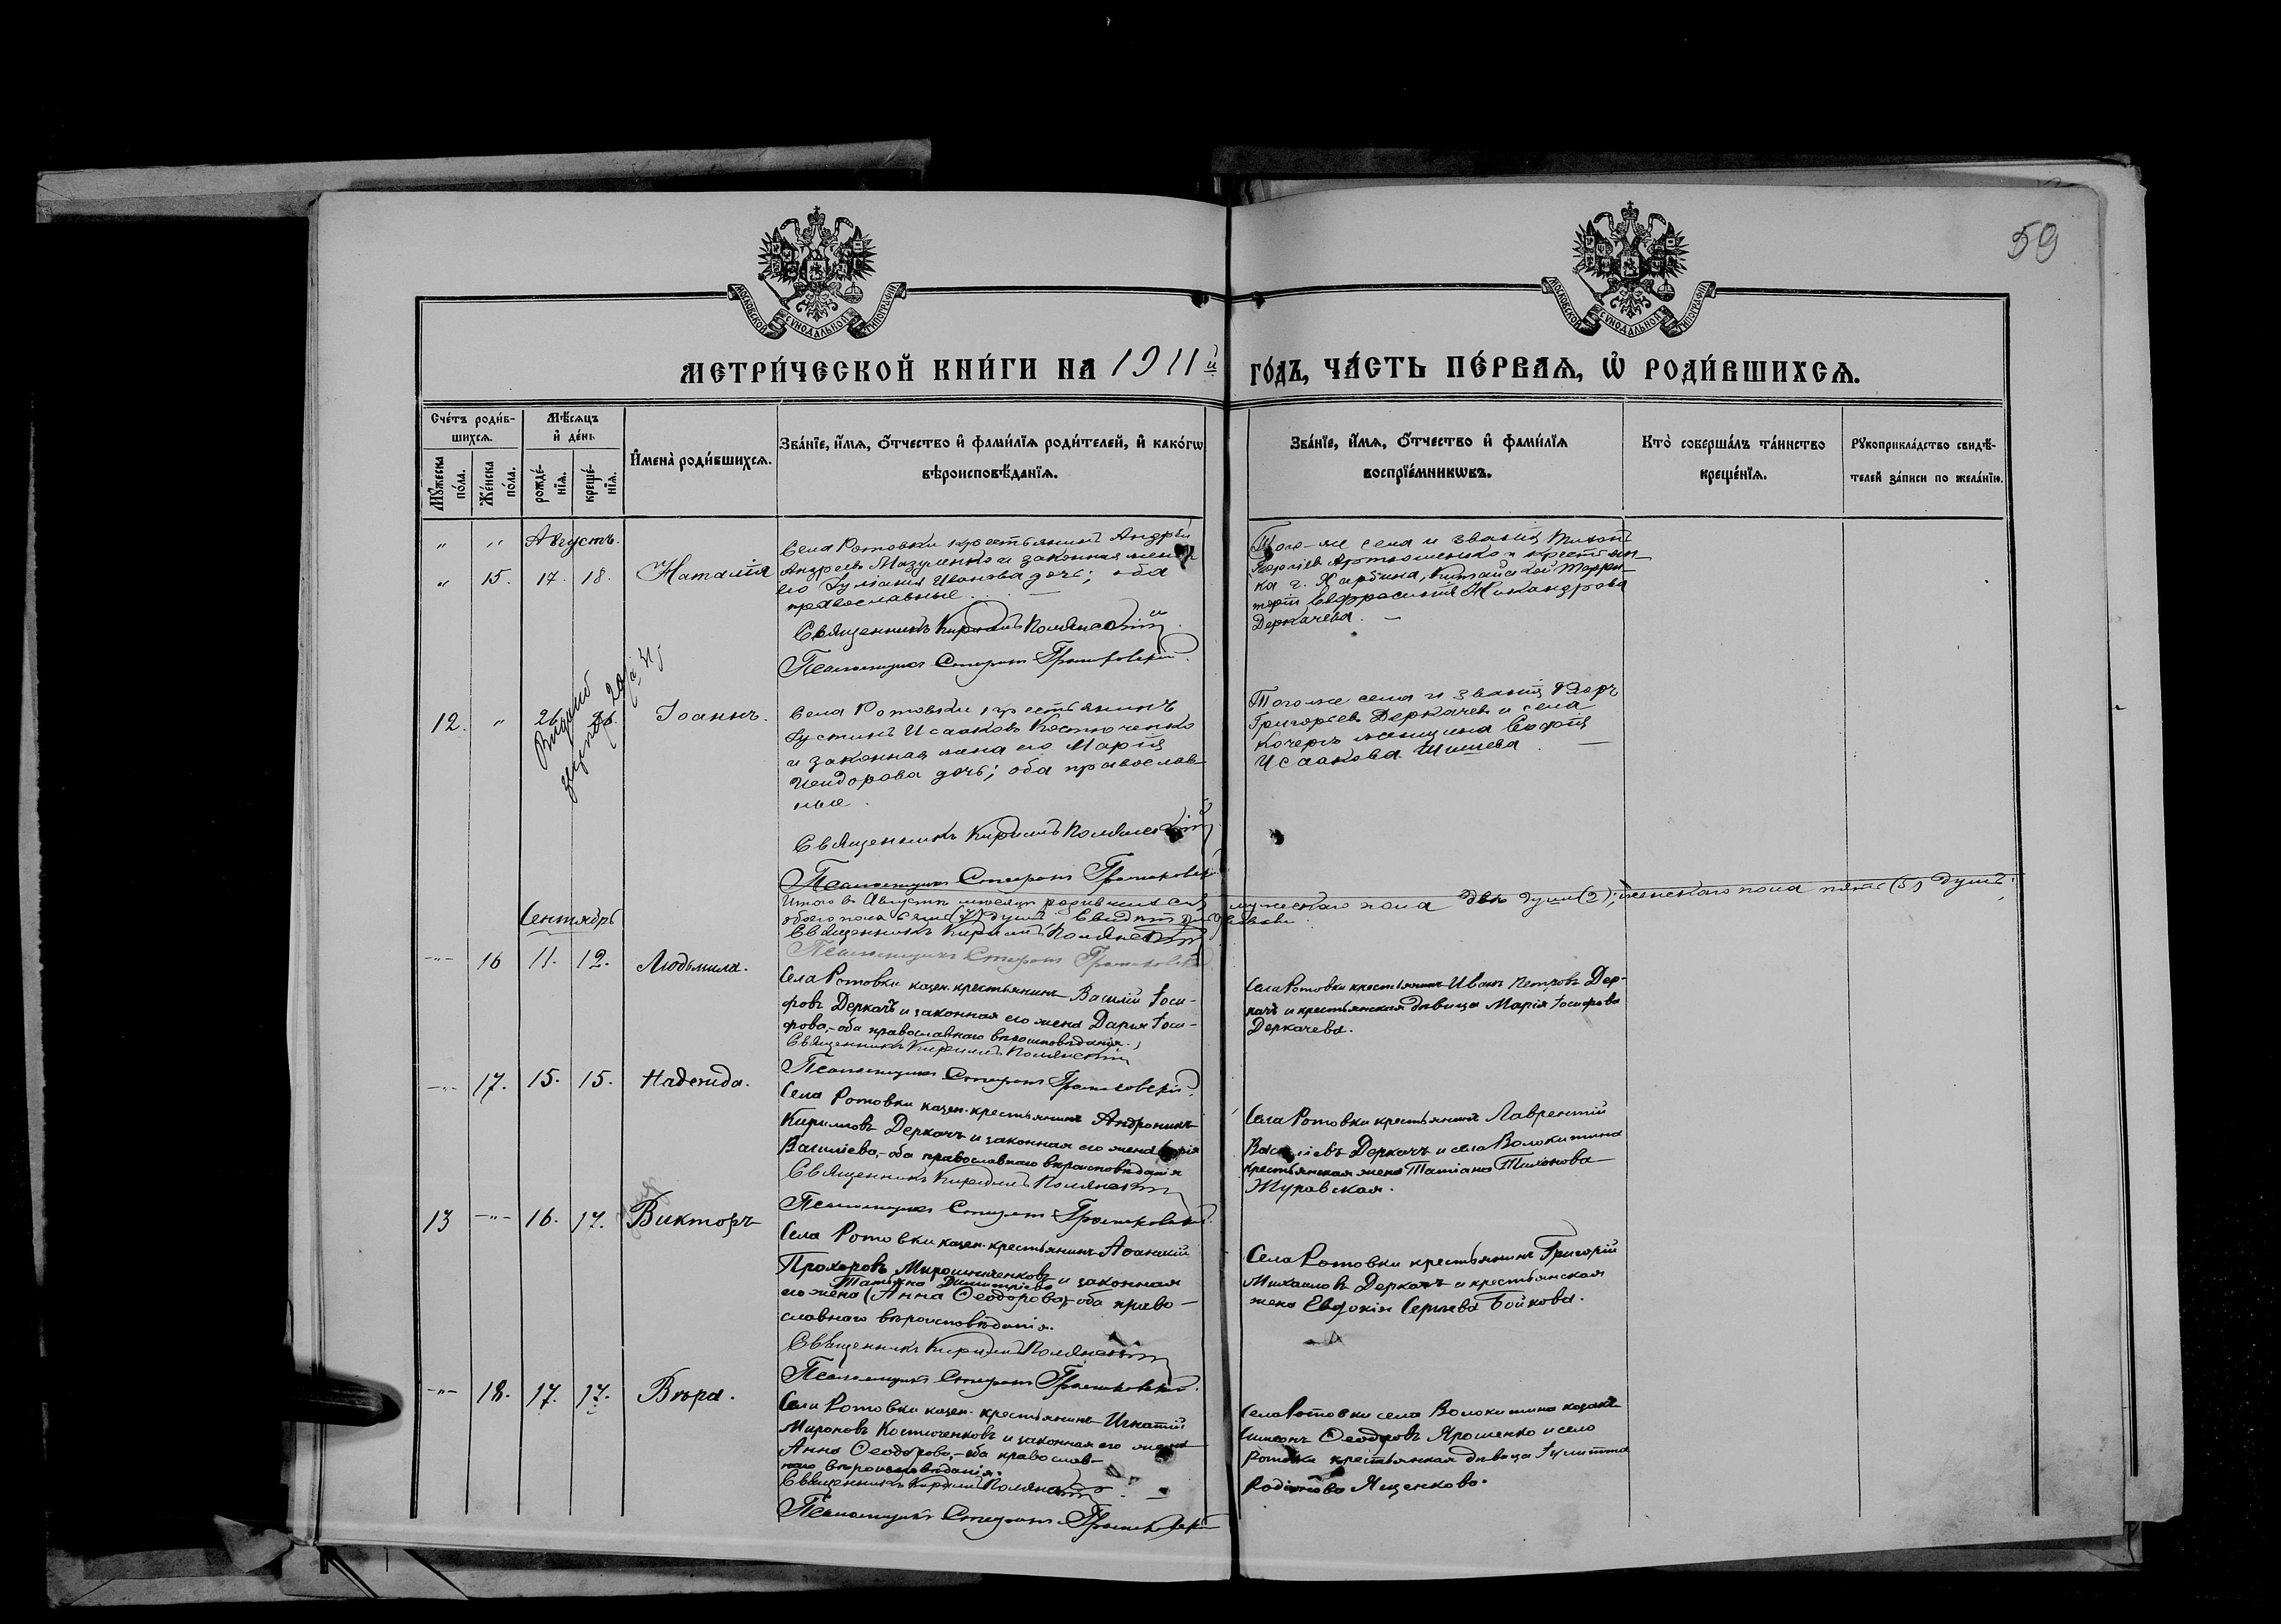 59
МОСКОВСКОЙ СѴНОДАЛЬНОЙ ТИПОГРАФІИ
МОСКОВСКОЙ СѴНОДАЛЬНОЙ ТИПОГРАФІИ
МЕТРИ́ЧЕСКОЙ КНИ́ГИ НА 1911й ГО́ДЪ, ЧА́СТЬ ПЕ́РВАЯ, Ѿ РОДИ́ВШИХСЯ.
Сче́тъ роди́вшихся.
Мѣ́сяцъ и де́нь
Мꙋ́жеска по́ла.
Же́нска по́ла.
рожде́нїя.
креще́нїя.
Имена̀ роди́вшихся.
Зва́нїе, и́мя, ѻ҆́тчество и҆ фами́лїя роди́телей, и҆ како́гѡ
вѣроисповѣ́данїя.
Зва́нїе, и́мя, ѻ҆́тчество и҆ фами́лїя
воспрїе́мникѡвъ.
Кто̀ соверша́лъ та́инство
креще́нїя.
Рꙋкоприкла́дство свидѣ́-
телей за́писи по жела́нїю.
" " Августъ.
" 15. 17. 18. Наталія
Села Ротовки крестьянинъ Андрей
Андреевъ Мазуменко и законная жена
его Іуліанія Иванова дочь; оба
православные.
Священникъ Кириллъ Полянскій
Псаломщикъ Стефанъ
Того-же села и званія Тихонъ
Артюшенко и крестьян-
ка г. Харбина, Китайской Терри-
торіи Евфросинія Никандрова
Деркачева. —
12. " 26 26. Іоаннъ.
Села Ротовки крестьянинъ
Іустинъ Исааковъ Костюченко
и законная жена его Марія
Ѳеодорова дочь; оба православ-
ные.
Священникъ Кириллъ Полянскій
Псаломщикъ Стефанъ
Того же села и званія
Григорьевъ Деркачевъ и села
Кочергъ женщина Софія
Исаакова Шишева. —
Итого въ Августѣ мѣсяцѣ родившихся мужескаго пола двѣ души (2); женскаго пола пять (5) душъ;
обоего пола семь (7) душъ.
Священникъ Кириллъ Полянскій
Псаломщикъ Стефанъ
Сентябрь
-"- 16 11. 12. Людьмила.
Села Ротовки казен. крестьянинъ Василій Іоси-
фовъ Деркачъ и законная его жена Дарья Іоси-
фова,-оба православнаго вѣроисповѣданія.
Священникъ Кириллъ Полянскій
Псаломщикъ Стефанъ
Села Ротовки крестьянинъ Иванъ Петровъ Дер-
качъ и крестьянская дѣвица Марія Іосифова
Деркачева.
-"- 17. 15. 15. Надежда.
Села Ротовки казен. крестьянинъ Андроникъ
Кирилловъ Деркачъ и законная его жена
Василіева,-оба православнаго вѣроисповѣданія
Священникъ Кириллъ Полянскій
Псаломщикъ Стефанъ
Села Ротовки крестьянинъ Лаврентій
Васильевъ Деркачъ и села Волокитина
крестьянская жена Татіана Тихонова
Журавская.
13 -"- 16. 17. Викторъ
Села Ротовки казен. крестьянинъ Аѳанасій
Прохоровъ Мирошниченковъ и законная
Татьяна Димитріева
его жена (Анна Ѳеодорова),-оба право-
славнаго вѣроисповѣданія.
Священникъ Кириллъ Полянскій
Псаломщикъ Стефанъ
Села Ротовки крестьянинъ Григорій
Михаиловъ Деркачъ и крестьянская
жена Евдокія Сергѣева Бойкова.
-"- 18. 17. 17. Вѣра.
Села Ротовки казен. крестьянинъ Игнатій
Мироновъ Костюченковъ и законная его жена
Анна Ѳеодорова,-оба православ-
наго вѣроисповѣданія.
Священникъ Кириллъ Полянскій
Псаломщикъ Стефанъ
Села Ротовки села Волокитина казакъ
Симеонъ Ѳеодоровъ Ярошенко и села
Ротовки крестьянская дѣвица Іулитта
Ященкова.